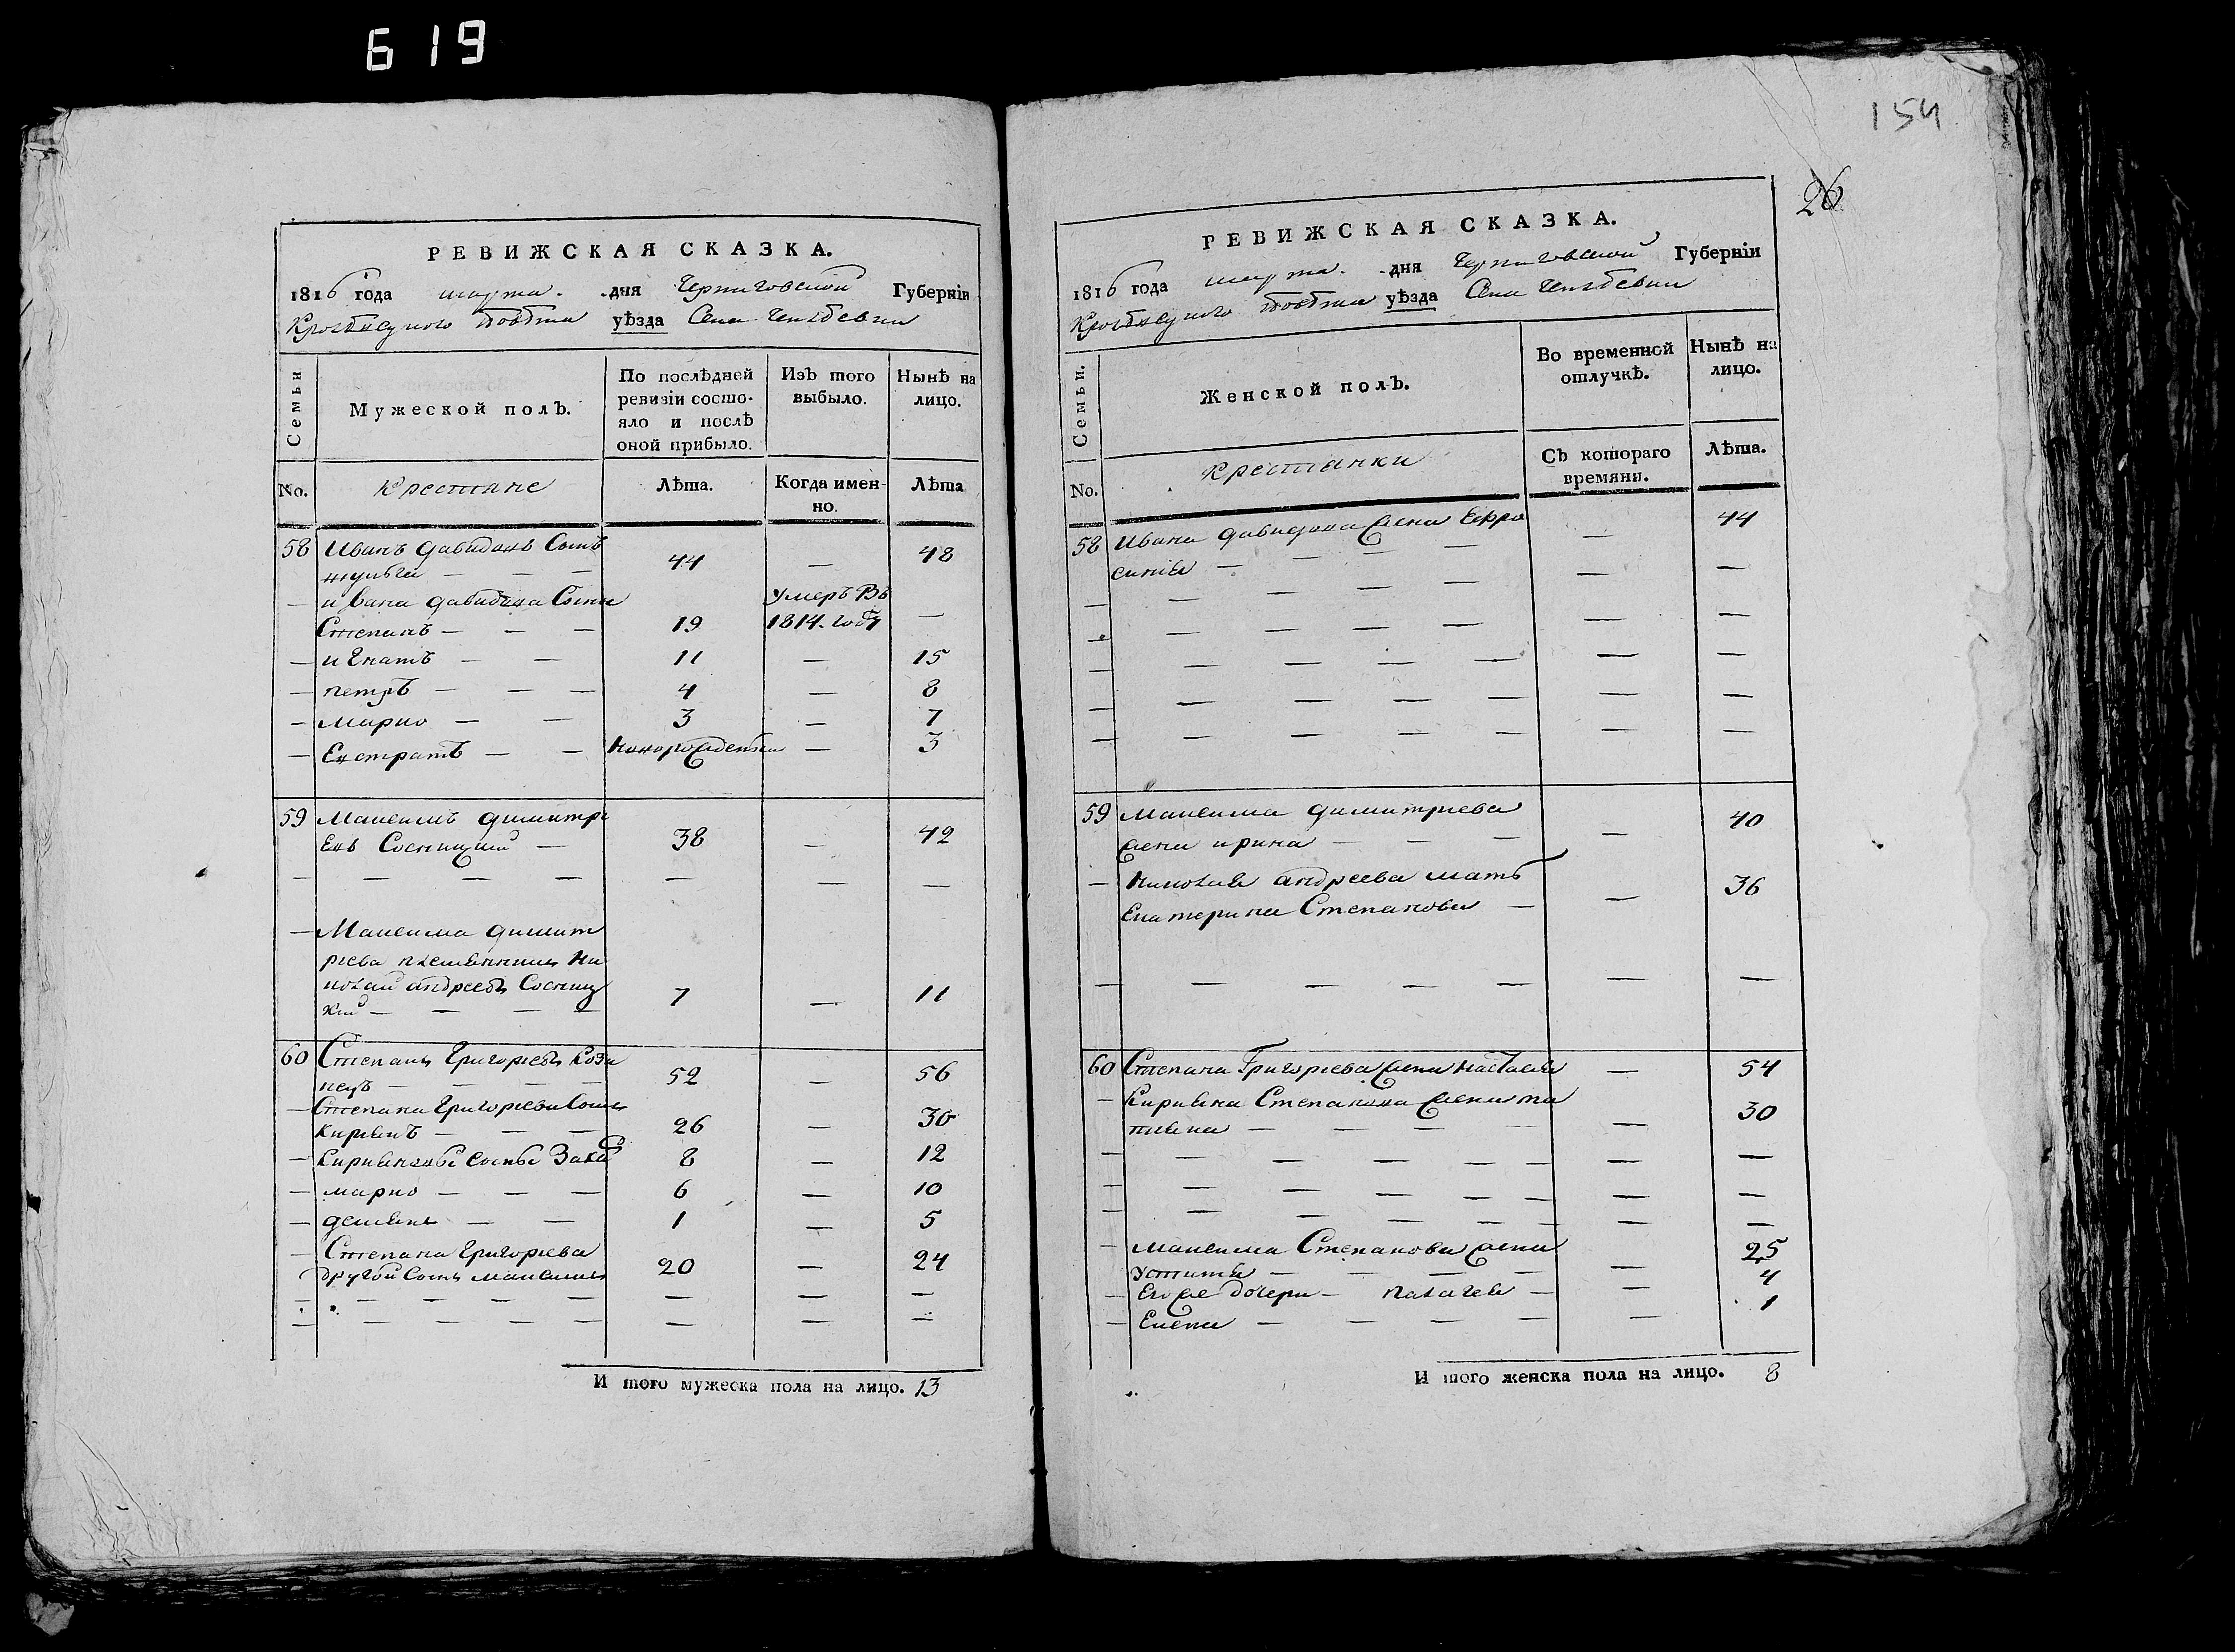 619
154
26
РЕВИЖСКАЯ СКАЗКА.
1816 года марта дня Черниговской Губерніи
повѣта уѣзда Села
Семьи
Мужеской полъ.
По послѣдней ревизіи состояло и послѣ оной прибыло.
Изъ того выбыло.
Нынѣ на лицо.
No.
Крестяне
Лѣта.
Когда именно.
Лѣта
58 Иванъ Давидовъ Сынъ
44 — 48
— Ивана Давидова Сыны
Степанъ — — — 19 Умеръ Въ 1814. годѣ —
— Игнатъ — — 11 — 15
— петръ — — — 4 — 8
— Марко — — 3 — 7
— Евстратъ — — Новорожденны — 3
59 Максимъ Димитрі
Евъ Сосницкий — 38 — 42
— — — — — — —
— Максима Димит
риева племянникъ Ни
колай андреевъ Сосниц
кий — — — — 7 — 11
60 Степанъ Григориевъ Коза
нецъ — — — — 52 — 56
— Степана Григориева Сынъ
Кириянъ — — — 26 — 30
— Кирияновы Сыны 8 — 12
— марко — — — 6 — 10
— Демянъ — — 1 — 5
— Степана Григориева
другой Сынъ максимъ 20 — 24
— — — — — — — — —
— — — — — — — — —
И того мужеска пола на лицо. 13
РЕВИЖСКАЯ СКАЗКА.
1816 года марта. дня Черниговской Губерніи
повѣта уѣзда Села
Семьи.
Женской полъ.
Во временной отлучкѣ.
Нынѣ на лицо.
No.
Крестянки
Съ котораго времяни.
Лѣта.
58 Ивана Давидова Жена Ефро
синия — — — — — 44
— — — — — —
— — — — — — —
— — — — — — —
— — — — — — —
— — — — — — —
59 Максима Димитриева
Жена ирина — — — — 40
— Николая андреева мать
Екатерина Степанова — — 36
— — — — — — —
60 Степана Григориева Жена настасия — 54
— Кирияна Степанова Жена та
тияна — — — — — 30
— — — — — — —
— — — — — — — —
— — — — — — — —
— Максима Степанова Жена
Устиния — — — — — 25
— Его Же дочери — палагея — — 4
— Елена — — — — — 1
И того женска пола на лицо. 8